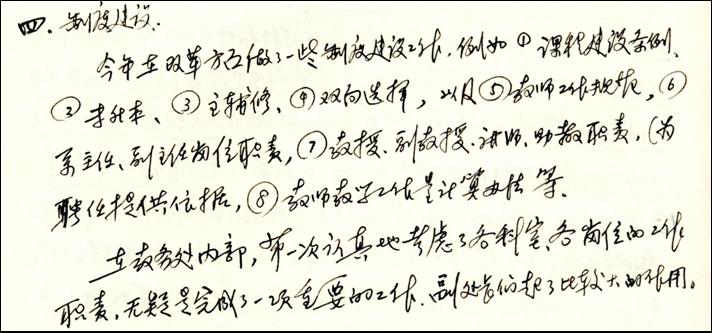 四、制度建设.
今年在改革方面做了一些制度建设工作,例如①课程建设条例、
②专升本、③主辅修、④双向选择,以及⑤教师工作规范,⑥
系主任、副主任岗位职责,⑦教授、副教授、讲师、助教职责,(为
聘任提供依据,⑧教师教学工作量计算办法等。
在教务处内部,第一次认真地考虑了各科室、各岗位的工作
职责,无疑是完成了一项重要的工作.副处长们起了比较大的作用。